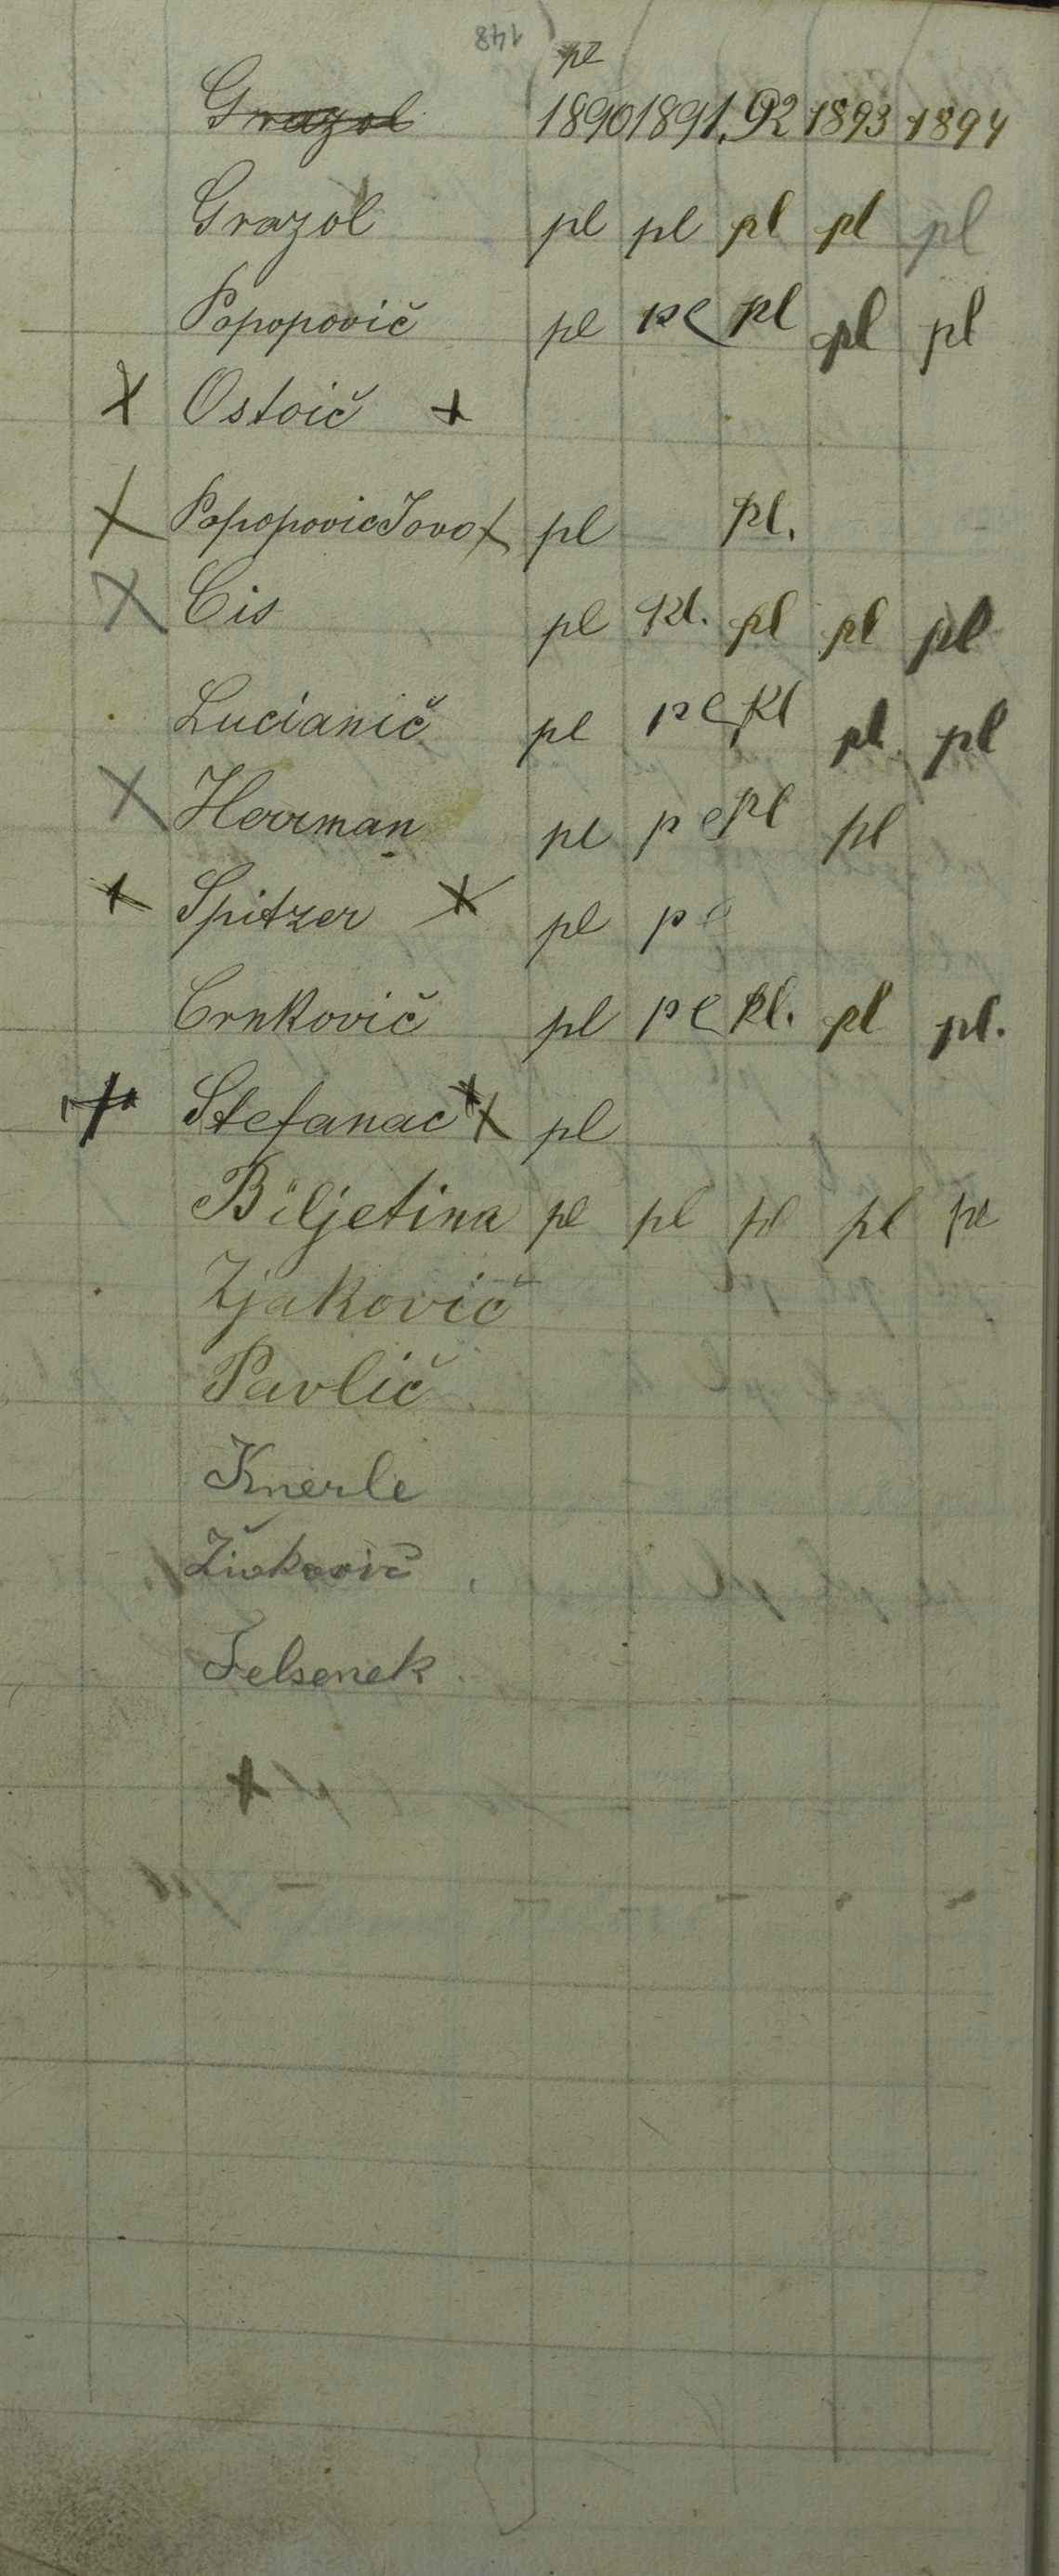 148
pl
Grazol 1890 1891. 92 1893 1894
Grazol pl pl pl pl pl
Popopovič pl pl pl pl pl
X Ostoič x
X Popopovic Jovo X pl pl.
X Cis pl pl. pl pl pl
Lucianič pl pl pl pl pl
X Herrman pl pl pl pl
x Spitzer X pl pl
Crnkovič pl pl pl. pl pl.
x Stefanac x X pl
Biljetina pl pl pl pl pl
Zjakovič
Pavlič
Knerle
Živkovič
Felsenek
x